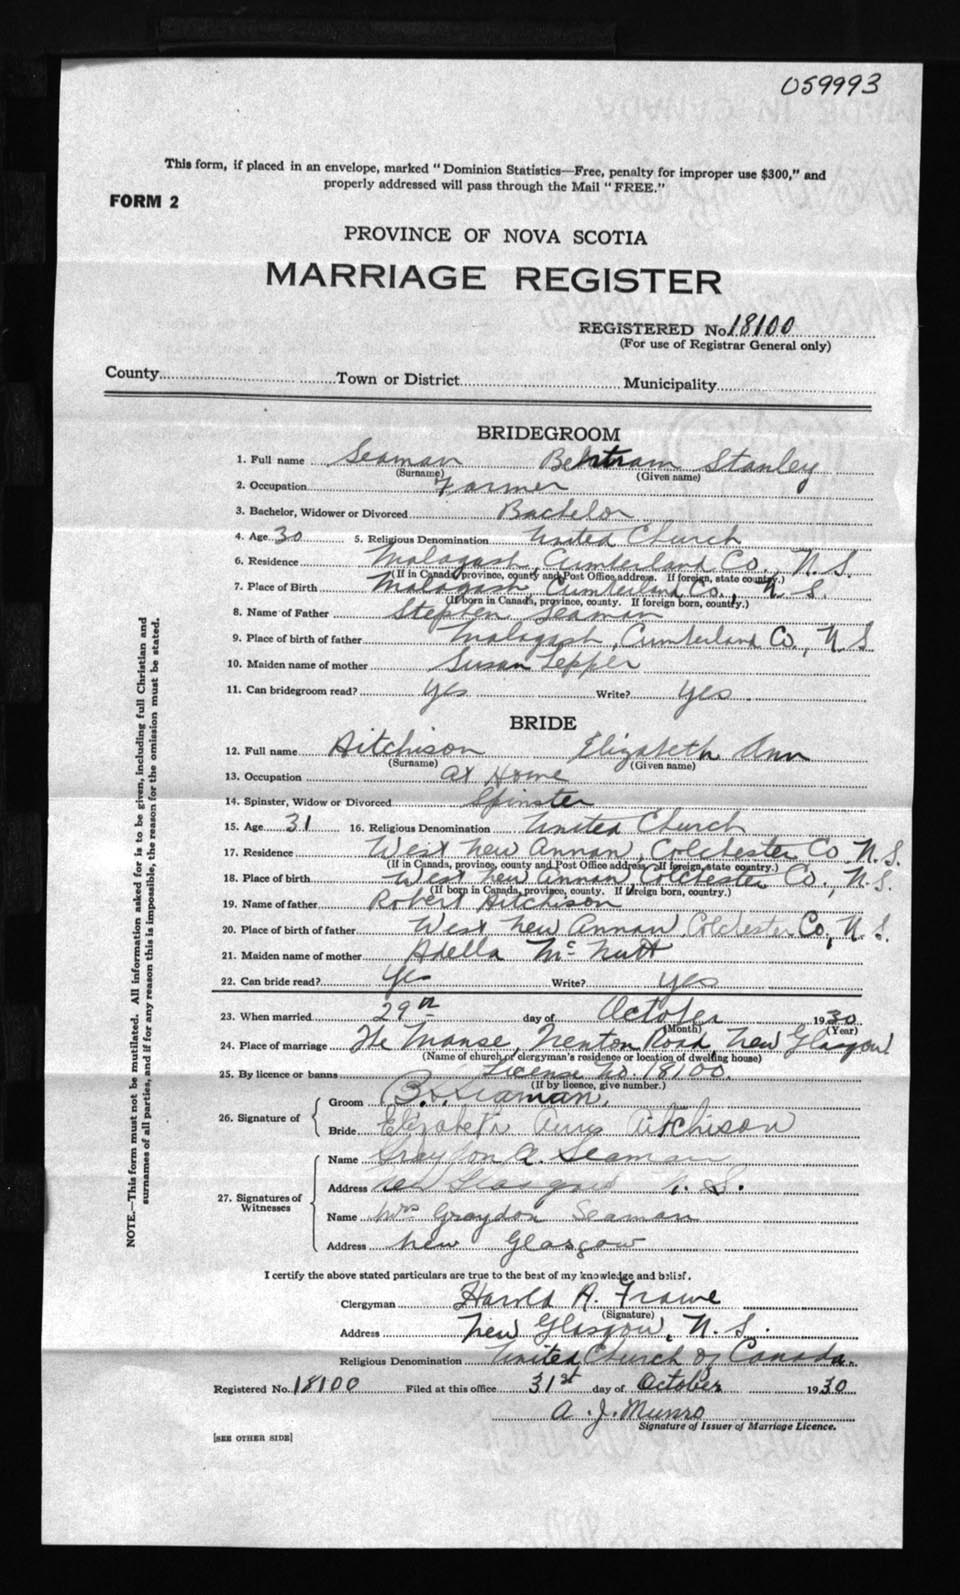 059993
This form, if placed in an envelope, marked "Dominion Statistics—Free, penalty for improper use $300," and
properly addressed will pass through the Mail "FREE."
FORM 2
PROVINCE OF NOVA SCOTIA
MARRIAGE REGISTER
REGISTERED No. 18100
(For use of Registrar General only)
County Town or District Municipality
BRIDEGROOM
1. Full name Seaman Bertram Stanley
(Surname) (Given name)
2. Occupation Farmer
3. Bachelor, Widower or Divorced Bachelor
4. Age 30 5. Religious Denomination United Church
6. Residence Malagash, Cumberland Co., N.S.
(If in Canada, province, county and Post Office address. If foreign, state country.)
7. Place of Birth Malagash, Cumberland Co., N.S.
(If born in Canada, province, county. If foreign born, country.)
8. Name of Father Stephen Seaman
9. Place of birth of father Malagash, Cumberland Co., N.S
10. Maiden name of mother Susan Tepper
11. Can bridegroom read? yes Write? yes
BRIDE
12. Full name Aitchison Elizabeth Ann
(Surname) (Given name)
13. Occupation at Home
14. Spinster, Widow or Divorced Spinster
15. Age 31 16. Religious Denomination United Church
17. Residence West New Annan, Colchester Co. N.S.
(If in Canada, province, county and Post Office address. If foreign, state country.)
18. Place of birth West New Annan, Colchester Co., N.S.
(If born in Canada, province, county. If foreign born, country.)
19. Name of father Robert Aitchison
20. Place of birth of father West New Annan, Colchester Co, N.S.
21. Maiden name of mother Adella McNutt
22. Can bride read? yes Write? yes
23. When married 29th day of October 1930
(Month) (Year)
24. Place of marriage The Manse, Trenton Road, New Glasgow
(Name of church or clergyman's residence or location of dwelling house)
25. By licence or banns License No. 18100.
(If by licence, give number.)
26. Signature of
Groom B. S. Seaman.
Bride Elizabeth Ann Aitchison
27. Signatures of Witnesses
Name Graydon A. Seaman
Address New Glasgow N. S.
Name Mrs Graydon Seaman
Address New Glasgow
I certify the above stated particulars are true to the best of my knowledge and belief.
Clergyman Harold A. Frame
(Signature)
Address New Glasgow, N.S.
Religious Denomination United Church of Canada.
Registered No. 18100 Filed at this office 31st day of October 1930
A. J. Munro
Signature of Issuer of Marriage Licence.
[SEE OTHER SIDE]
NOTE.—This form must not be mutilated. All information asked for is to be given, including full Christian and
surnames of all parties, and if for any reason this is impossible, the reason for the omission must be stated.